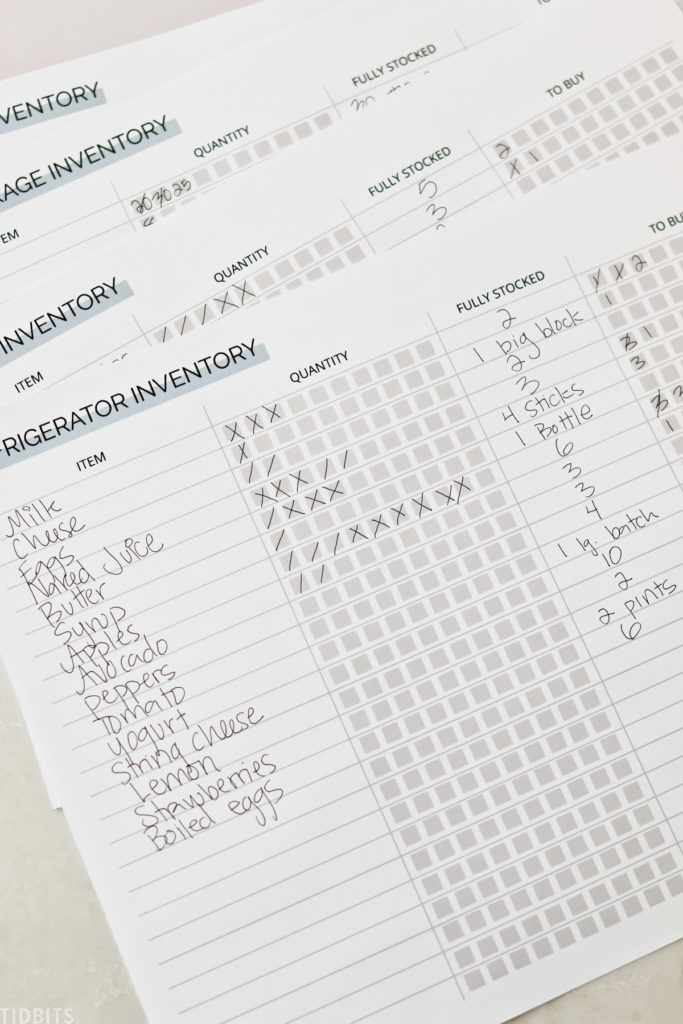 TO
VENTORY
FULLY STOCKED
RAGE INVENTORY
QUANTITY
TO BUY
ITEM
20 30 25
FULLY STOCKED
2
5
X 1
3
INVENTORY
QUANTITY
TO BUY
ITEM
/ / / X X
X X 2
FRIGERATOR INVENTORY
QUANTITY
FULLY STOCKED
ITEM
Milk X X X 2
Cheese X 1 big block
Eggs / / 2
Naked Juice X X X / / 3
Butter / X X X 4 Sticks
Syrup 1 Bottle
Apples / / / X X X X X X 6
Avocado / / 3
peppers 3
Tomato 4
yogurt 1 lg. batch
String cheese 10
Lemon 2
Strawberries 2 pints
Boiled eggs 6
TIDBITS